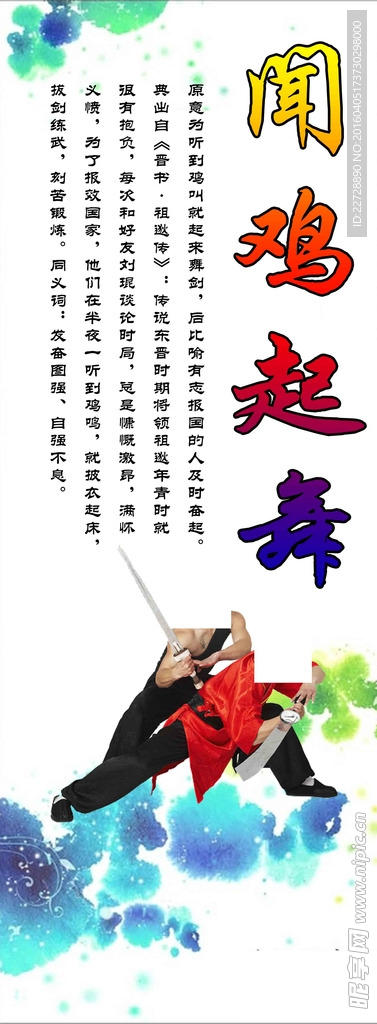 闻鸡起舞
原意为听到鸡叫就起来舞剑，后比喻有志报国的人及时奋起。
典出自《晋书·祖逖传》：传说东晋时期将领祖逖年青时就
很有抱负，每次和好友刘琨谈论时局，总是慷慨激昂，满怀
义愤，为了报效国家，他们在半夜一听到鸡鸣，就披衣起床，
拔剑练武，刻苦锻炼。同义词：发奋图强、自强不息。
ID:22728890 NO:20160405173730298000
昵享网 www.nipic.cn